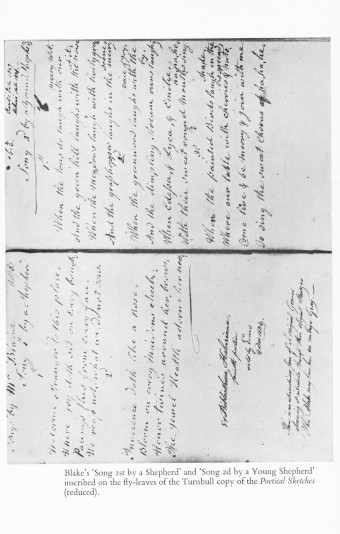 Song 2d by a Young Shepherd
1st
When the trees do laugh with our merry wit,
And the green hill laughs with the noise of it,
When the meadows laugh with lively green
And the grasshopper laughs in the merry scene,
2d
When the greenwood laughs with the voice of joy,
And the dimpling stream runs laughing by,
When Edessa, & Lyca, & Emilie,
With their sweet round mouths sing ha, ha, he,
3d
When the painted Birds laugh in the shade,
Where our table with cherries & nuts is spread;
Come live & be merry & join with me
To sing the sweet chorus of ha, ha, he.
Songs by Mr Blake
Song 1st by a Shepherd
1st
Welcome stranger to this place,
Where joy doth sit on every bough,
Paleness flies from every face,
We reap not, what we do not sow.
2d
Innocence doth like a Rose,
Bloom on every Maidens cheek;
Honor twines around her brows,
The jewel Health adorns her neck.
Blake's 'Song 1st by a Shepherd' and 'Song 2d by a Young Shepherd'
inscribed on the fly-leaves of the Turnbull copy of the Poetical Sketches
(reduced).